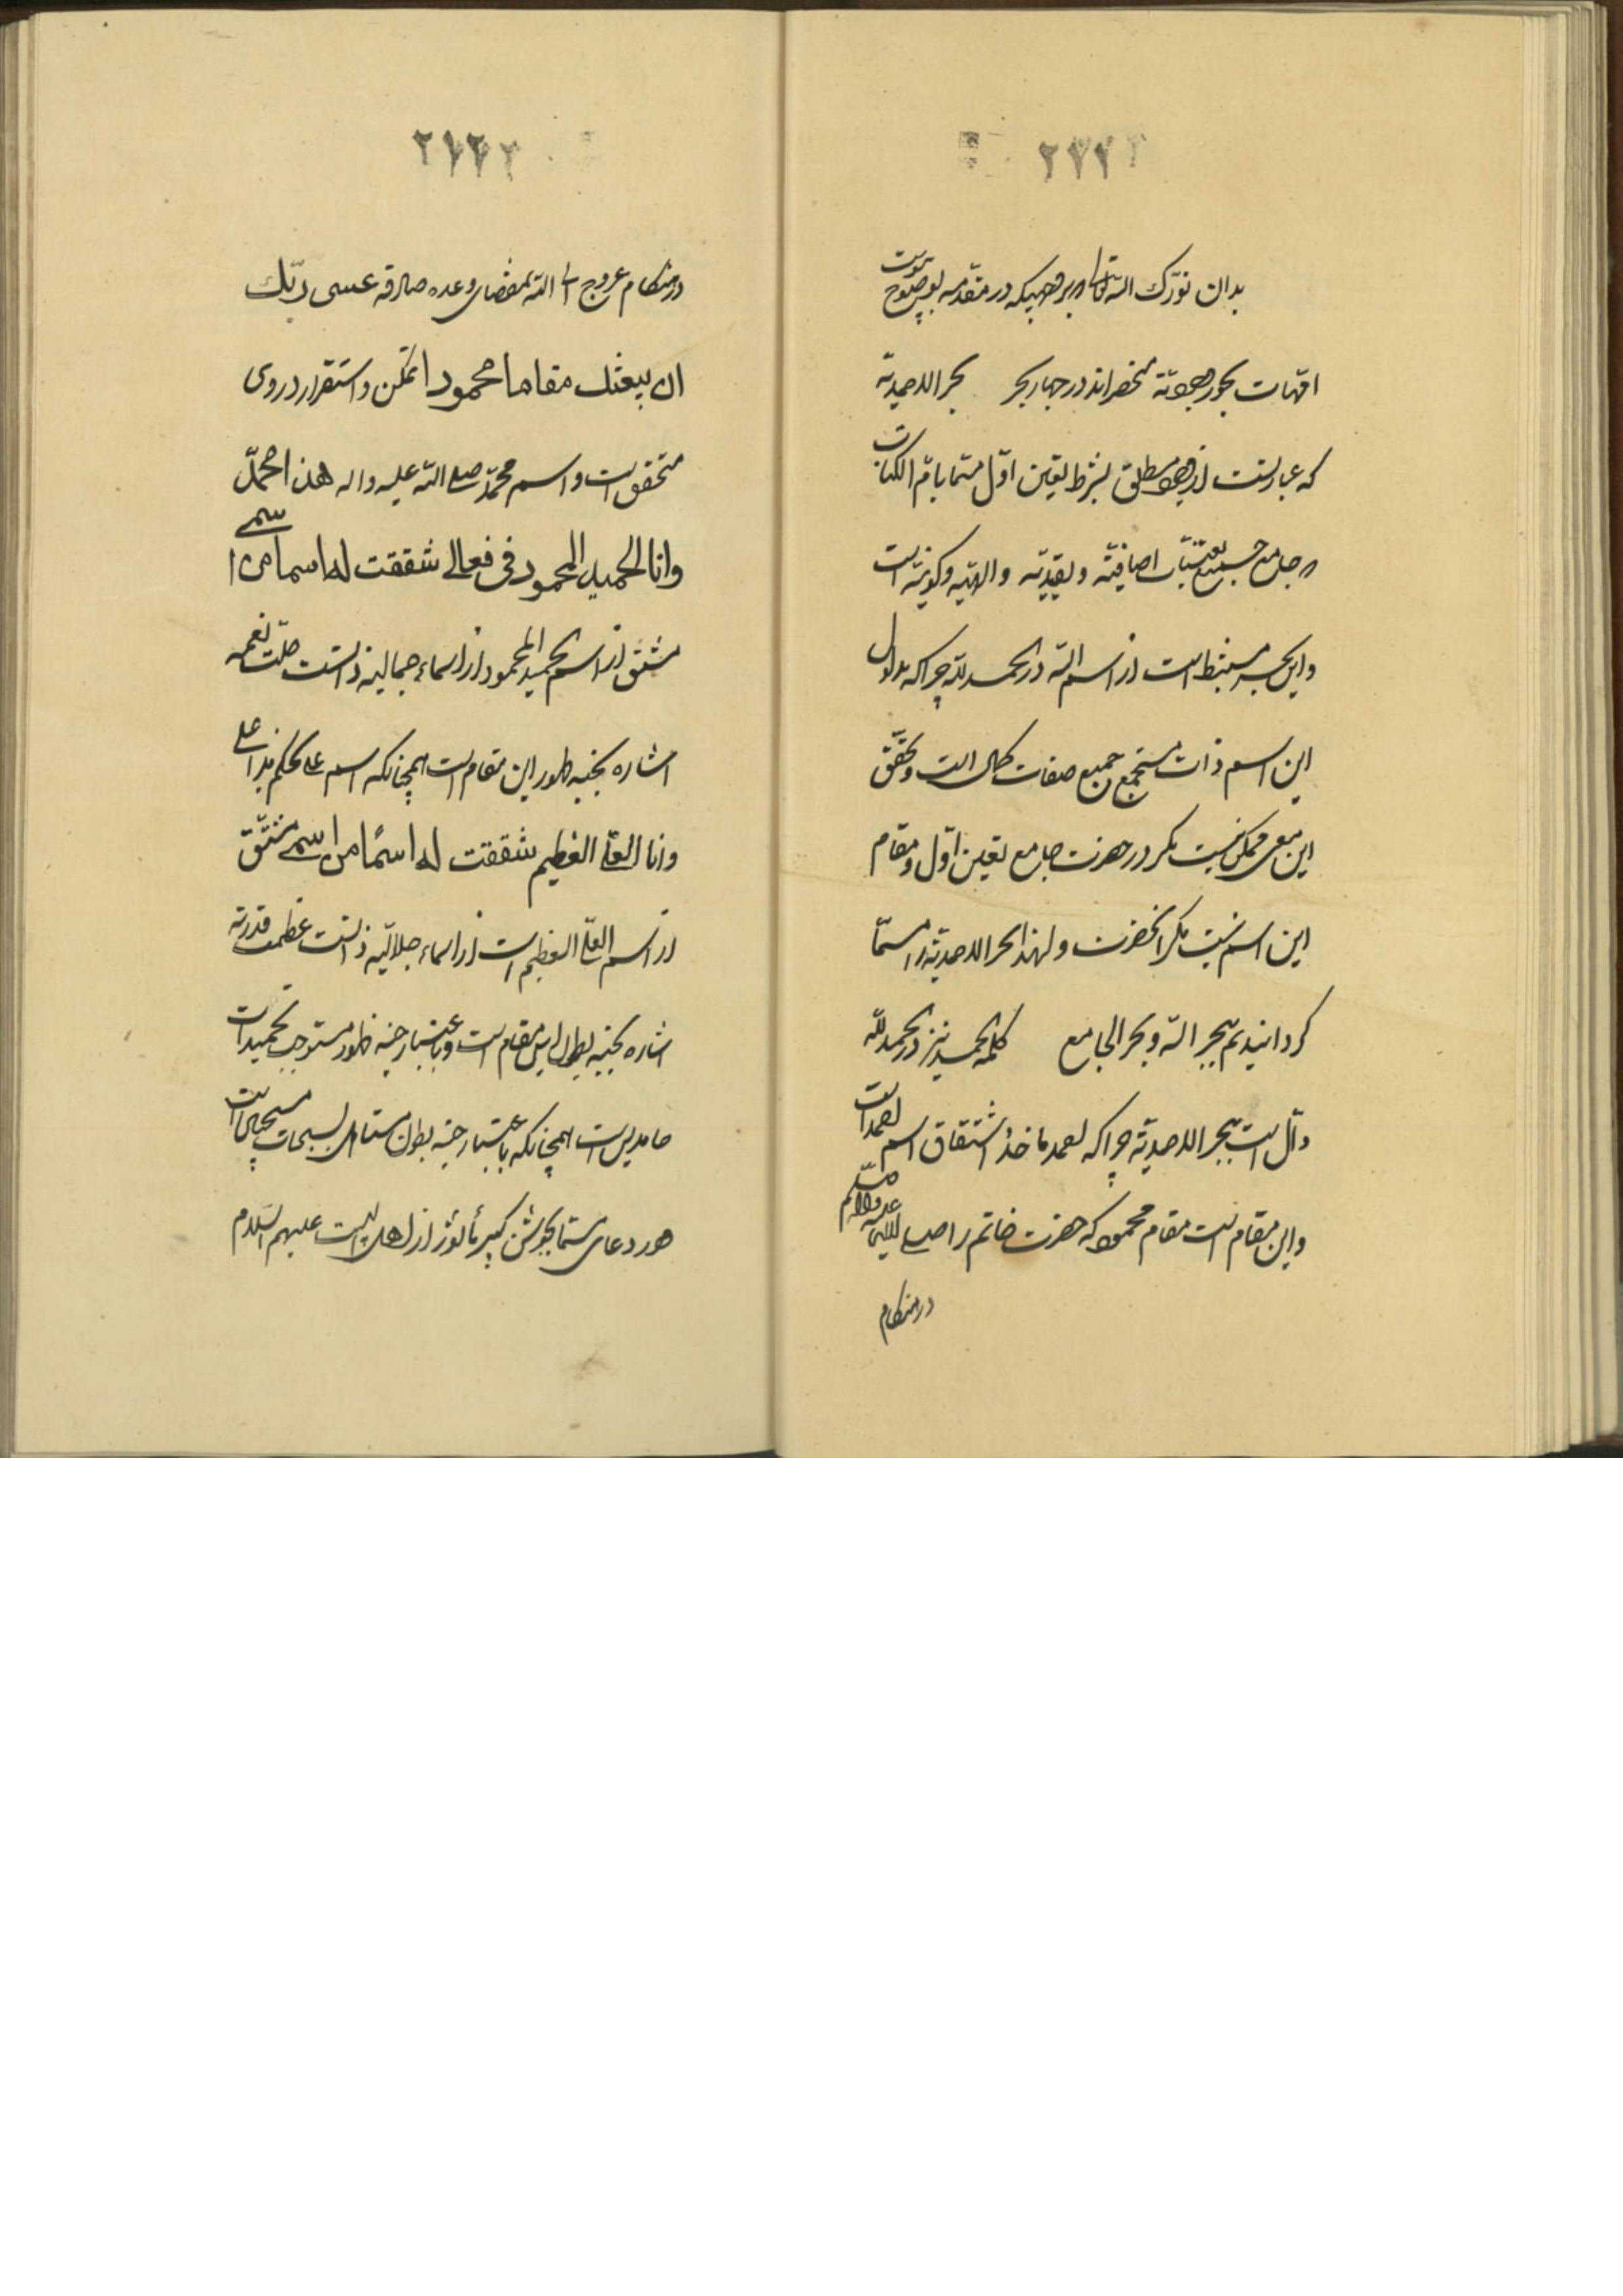 بدان نوّرک الله تعالی بر وجهیکه در مقدمه بوضوح پیوست
امّهات بحور وجودیّة منحصراند در چهار بحر بحر الاحدیّة
که عبارتست از وجود مطلق بشرط تعین اوّل مسمّا بامّ الکتاب
و جامع جمیع تعیّنات اضافیّه و تقییدیّه و الهیّه و کونیّه است
و این بحر مستنبط است از اسم الله در الحمد لله چرا که مدلول
این اسم ذات مستجمع جمیع صفات کمال است و تحقّق
این معنی ممکن نیست مکر در حضرت جامع تعین اوّل و مقام
این اسم نیست مکر آنحضرت و لهذا بحر الاحدیّة را مسمّا
کردانیدیم ببحر الله و بحر الجامع کلمه الحمد نیز در الحمد لله
دالّ است ببحر الاحدیّة چرا که لحمد ماخذ اشتقاق اسم لحمد است
و این مقام است مقام محمود که حضرت خاتم را صلی الله علیه و اله و سلم
در هنکام
٢٧٢
در هنکام عروج الی الله بمقتضای وعده صادقه عسی ربّك
ان یبعثك مقاما محمودا تمکّن و استقرار در وی
متحقق است و اسم محمّد صلی الله علیه و اله هذا محمّد
وانا الحمید المحمود فی فعالی شققت له اسما من اسمی
مشتق از اسم الحمید المحمود از اسماء جمالیه ذاتست جلّت نعمه
اشاره بجنبه ظهور این مقام است همچنانکه اسم علی بحکم هذا علی
وانا العلیّ العظیم شققت له اسمًا من اسمی مشتّق
از اسم العلیّ العظیم است از اسماء جلالیّه ذاتست عظمت قدرته
اشاره بجنبه بطون این مقام است و باعتبار جنبه ظهور مستوجب تحمیدات
حامدین است همچنانکه باعتبار جنبه بطون مستاهل تسبیحات مسبحین است
و در دعای مسمّا بجوشن کبیر مأثور از اهل البیت علیهم السّلام